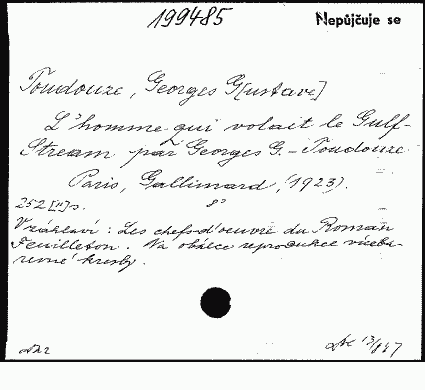 199485 Nepůjčuje se
Toudouze, Georges G[ustave]
L'homme qui volait le Gulf-
Stream par Georges G.-Toudouze
Paris, Gallimard, (1923).
252 [II] s. 8°
V záhlaví: Les chefs-d'oeuvre du Roman
Feuilleton. Na obálce reprodukce víceba-
revné kresby.